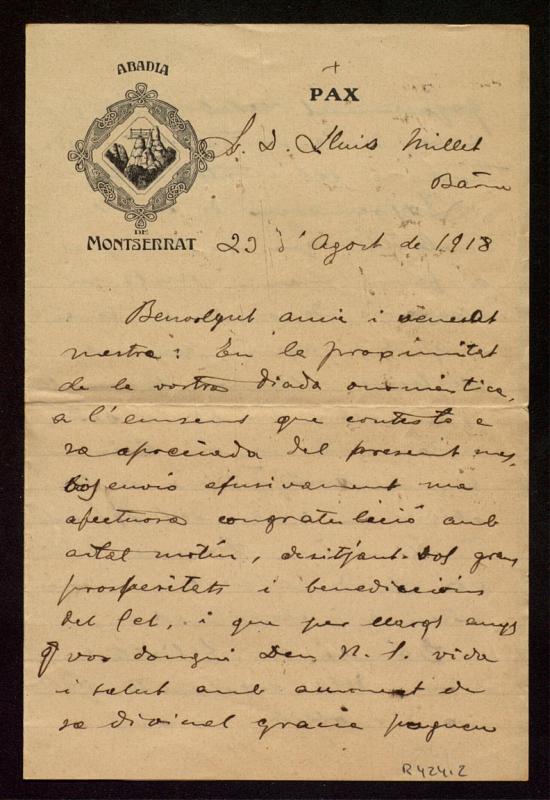 ABADIA
PAX
S. D. Lluis Millet
Barna
DE
MONTSERRAT
23 d' Agost de 1918
Benvolgut amic i venerat
mestre: En la proximitat
de la vostra diada onomàstica,
a l'ensems que contesto a
sa apreciada del present mes,
vos envio efusivament ma
afectuosa congratulació amb
aital motiu, desitjant-vos grans
prosperitats i benediccions
del Cel, i que per llargs anys
vos dongui Deu N. S. vida
i salut amb augment de
sa divinal gracia
R 424.2